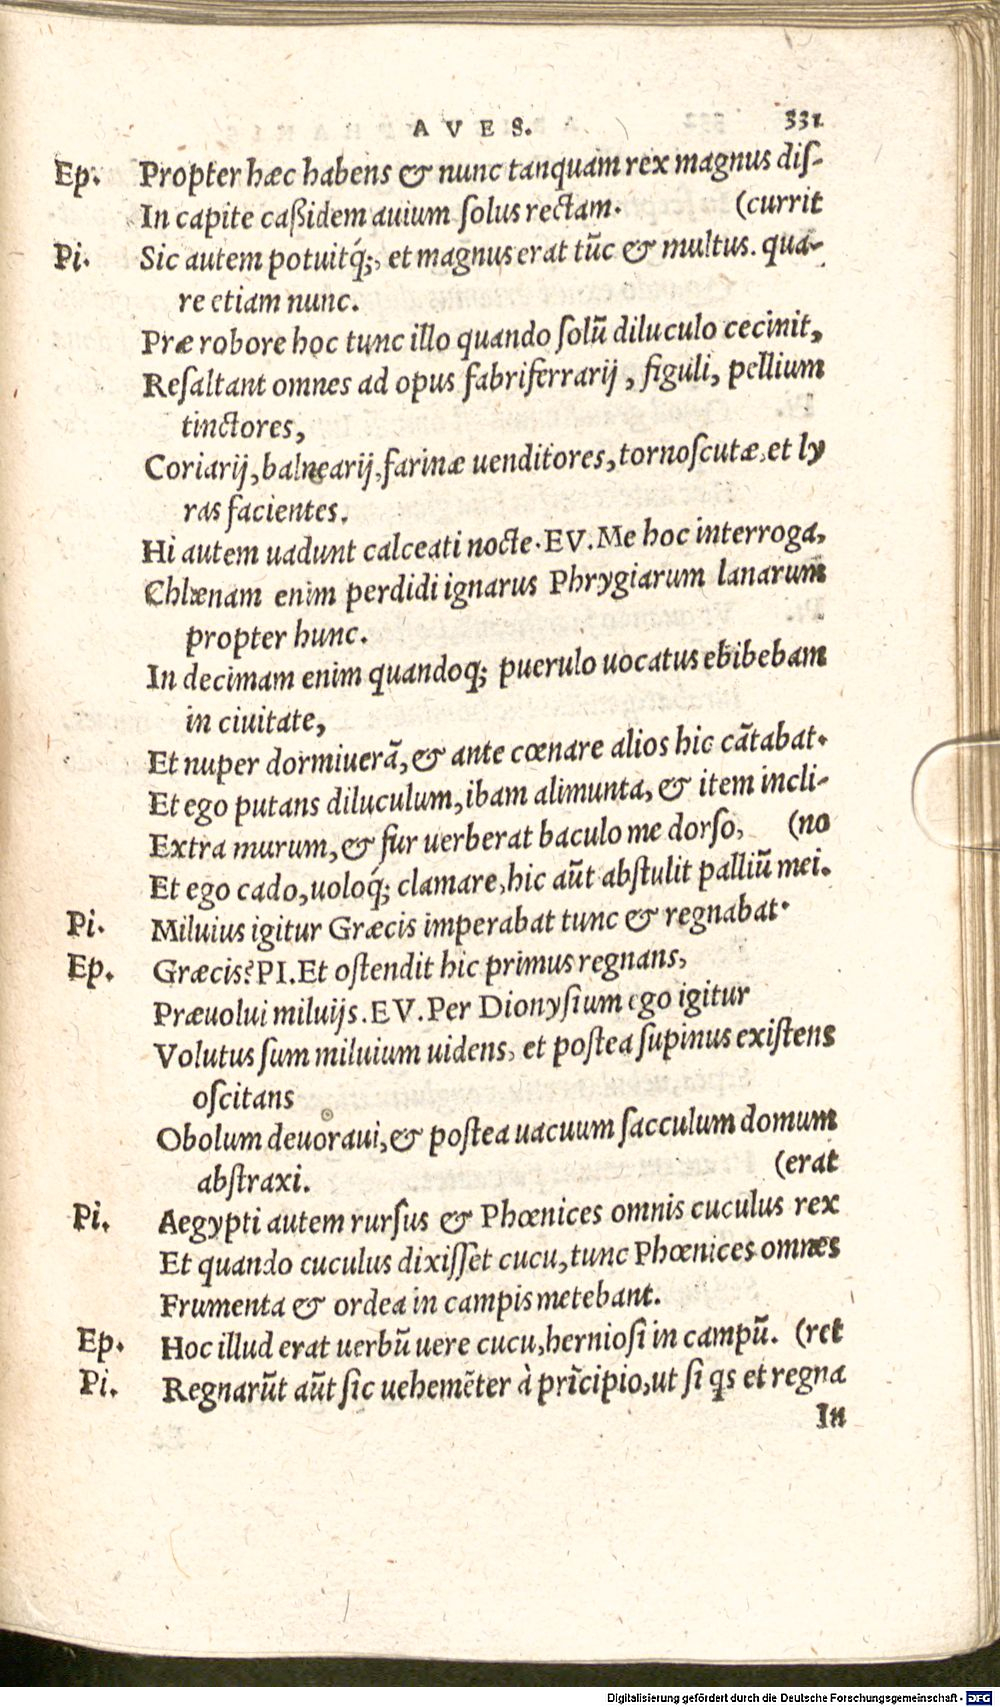 AVES. 331
Ep. Propter hæc habens & nunc tanquam rex magnus diſ-
In capite caßidem auium ſolus rectam. (currit
Pi. Sic autem potuitq́;, et magnus erat tũc & multus. qua-
re etiam nunc.
Præ robore hoc tunc illo quando ſolũ diluculo cecinit,
Reſaltant omnes ad opus fabriferrarij, figuli, pellium
tinctores,
Coriarij, balnearij, farinæ uenditores, tornoſcutæ, et ly
ras facientes.
Hi autem uadunt calceati nocte. EV. Me hoc interroga,
Chlænam enim perdidi ignarus Phrygiarum lanarum
propter hunc.
In decimam enim quandoq; puerulo uocatus ebibebam
in ciuitate,
Et nuper dormiuerã, & ante cœnare alios hic cãtabat.
Et ego putans diluculum, ibam alimunta, & item incli-
Extra murum, & fur uerberat baculo me dorſo, (no
Et ego cado, uoloq́; clamare, hic aũt abſtulit palliũ mei.
Pi. Miluius igitur Græcis imperabat tunc & regnabat.
Ep. Græcis? PI. Et oſtendit hic primus regnans,
Præuolui miluijs. EV. Per Dionyſium ego igitur
Volutus ſum miluium uidens, et poſtea ſupinus exiſtens
oſcitans
Obolum deuoraui, & poſtea uacuum ſacculum domum
abſtraxi. (erat
Pi. Aegypti autem rurſus & Phœnices omnis cuculus rex
Et quando cuculus dixiſſet cucu, tunc Phœnices omnes
Frumenta & ordea in campis metebant.
Ep. Hoc illud erat uerbũ uere cucu, hernioſi in campũ. (ret
Pi. Regnarũt aũt ſic uehemẽter à prĩcipio, ut ſi qs et regna
In
Digitalisierung gefördert durch die Deutsche Forschungsgemeinschaft - DFG